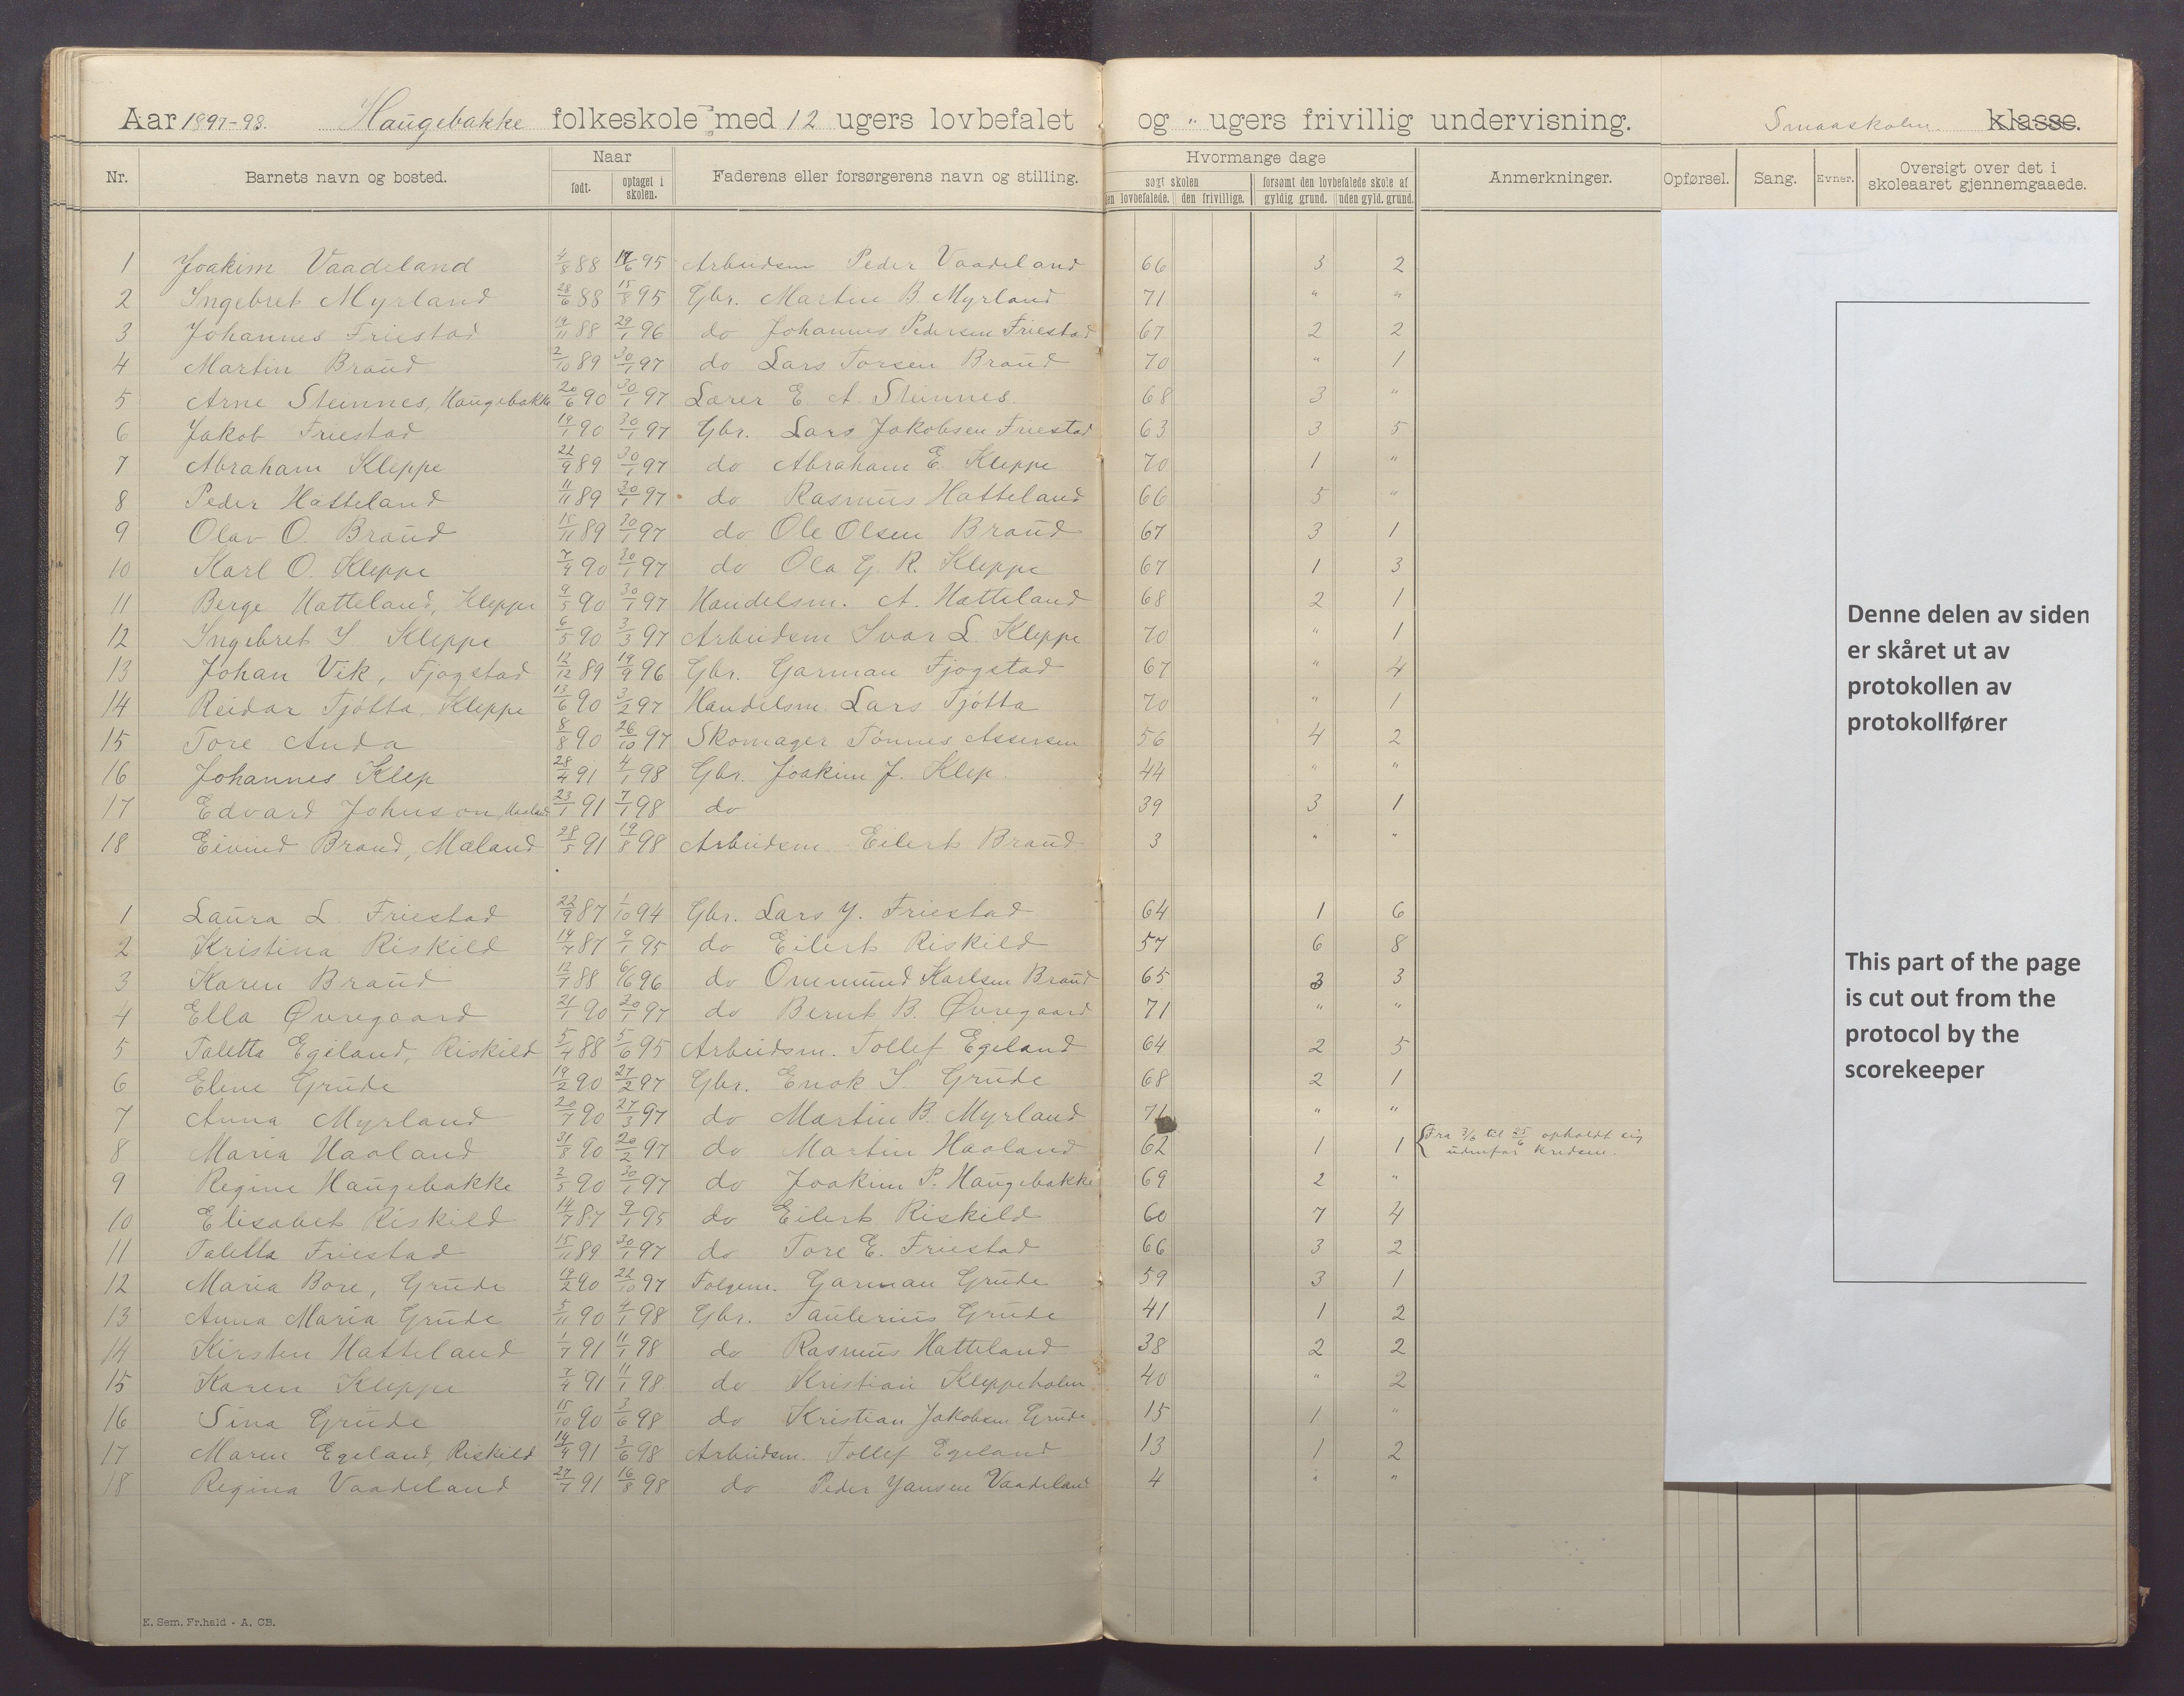 Aar 1897-98. Haugebakke folkeskole med 12 ugers lovbefalet og " ugers frivillig undervisning. Smaaskolen klasse.
Nr. Barnets navn og bosted. Naar født. optaget i skolen. Faderens eller forsørgerens navn og stilling. Hvormange dage søgt skolen den lovbefalede. den frivillige. forsømt den lovbefalede skole af gyldig grund. uden gyld. grund. Anmerkninger. Opførsel. Sang. Evner. Oversigt over det i skoleaaret gjennemgaaede.
1 Joakim Vaadeland 4/8 88 17/6 95 Arbeidsm Peder Vaadeland 66 3 2
2 Ingebret Myrland 28/6 88 15/8 95 Gbr. Martin B. Myrland 71 " "
3 Johannes Friestad 19/11 88 29/1 96 do Johannes Pedersen Friestad 67 2 2
4 Martin Braud 2/10 89 30/1 97 do Lars Torsen Braud 70 " 1
5 Arne Steinnes, Haugebakke 20/6 90 30/1 97 Lærer E. A. Steinnes. 68 3 "
6 Jakob Friestad 19/1 90 30/1 97 Gbr. Lars Jakobsen Friestad 63 3 5
7 Abraham Kleppe 22/9 89 30/1 97 do Abraham E. Kleppe 70 1 "
8 Peder Hatteland 11/11 89 30/1 97 do Rasmus Hatteland 66 5 "
9 Olav O. Braud 15/11 89 30/1 97 do Ole Olsen Braud 67 3 1
10 Karl O. Kleppe 7/4 90 30/1 97 do Ola G. R. Kleppe 67 1 3
11 Berge Hatteland, Kleppe 9/5 90 30/1 97 Handelsm. A. Hatteland 68 2 1
12 Ingebret I. Kleppe 6/5 90 3/3 97 Arbeidsm Ivar L. Kleppe 70 " 1
13 Johan Vik, Fjogstad 12/12 89 19/9 96 Gbr. Garman Fjogstad 67 " 4
14 Reidar Tjøtta, Kleppe 13/6 90 3/2 97 Handelsm. Lars Tjøtta 70 " 1
15 Tore Anda 8/8 90 26/10 97 Skomager Tønnes Assersen 56 4 2
16 Johannes Klep 28/4 91 4/1 98 Gbr. Joakim J. Klep. 44 " "
17 Edvard Johnson, Haaland 23/1 91 7/1 98 do 39 3 1
18 Eivind Braud, Mæland 28/5 91 19/8 98 Arbeidsm Eilert Braud 3 " "
1 Laura L. Friestad 22/9 87 1/10 94 Gbr. Lars J. Friestad 64 1 6
2 Kristina Riskild 14/7 87 9/1 95 do Eilert Riskild 57 6 8
3 Karen Braud 12/7 88 6/6 96 do Ommund Karlsen Braud 65 3 3
4 Ella Øvregaard 21/1 90 30/1 97 do Bernt B. Øvregaard 71 " "
5 Taletta Egeland, Riskild 5/4 88 5/6 95 Arbeidsm. Tollef Egeland 64 2 5
6 Eline Grude 19/2 90 27/2 97 Gbr. Enok S. Grude 68 2 1
7 Anna Myrland 20/7 90 27/3 97 do Martin B. Myrland 71 " "
8 Maria Haaland 31/8 90 20/2 97 do Martin Haaland 62 1 1 Fra 3/6 til 25/6 opholdt sig
udenfor kredsen.
9 Regine Haugebakke 2/5 90 30/1 97 do Joakim P. Haugebakke 69 2 "
10 Elisabet Riskild 14/7 87 9/1 95 do Eilert Riskild 60 7 4
11 Taletta Friestad 15/11 89 30/1 97 do Tore E. Friestad 66 3 2
12 Maria Bore, Grude 19/2 90 22/10 97 Folgem. Garman Grude 59 3 1
13 Anna Maria Grude 5/11 90 4/1 98 Gbr. Paulerius Grude 41 1 2
14 Kirsten Hatteland 1/7 91 11/1 98 do Rasmus Hatteland 38 2 2
15 Karen Kleppe 7/4 91 11/1 98 do Kristian Kleppeholen 40 " 2
16 Sina Grude 15/10 90 3/6 98 do Kristian Jakobsen Grude 15 1 "
17 Maren Egeland, Riskild 14/4 91 3/6 98 Arbeidsm. Tollef Egeland 13 1 2
18 Regina Vaadeland 27/7 91 16/8 98 do Peder Jansen Vaadeland 4 " "
E. Sem. Fr.hald - A. CB.
Denne delen av siden
er skåret ut av
protokollen av
protokollfører
This part of the page
is cut out from the
protocol by the
scorekeeper